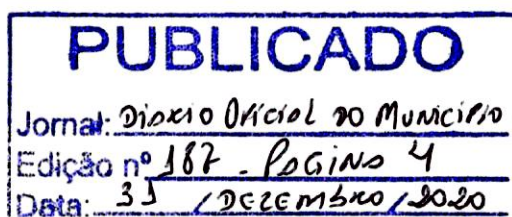 PUBLICADO
Jornal: Diário Oficial do Município
Edição nº 187 - Página 4
Data: 31 / DEZEMBRO / 2020